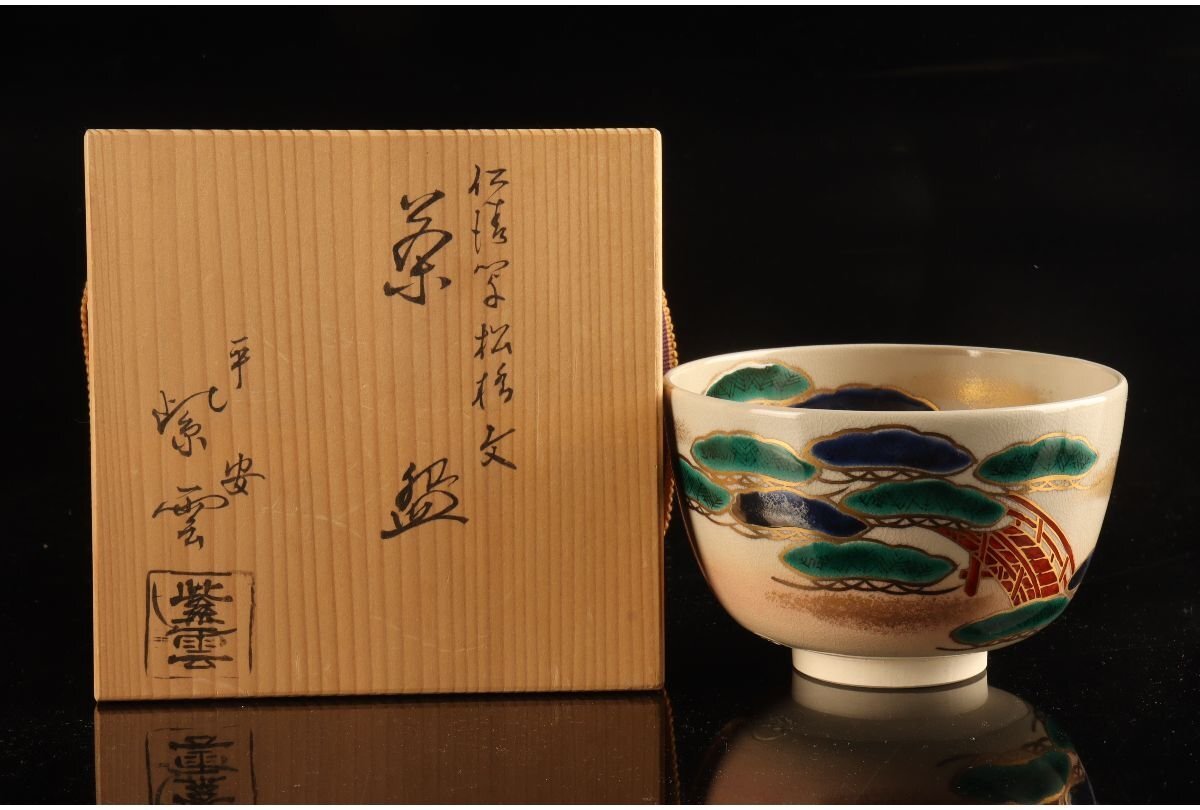 仁清写松橋文
茶盌
平安
紫雲
紫雲